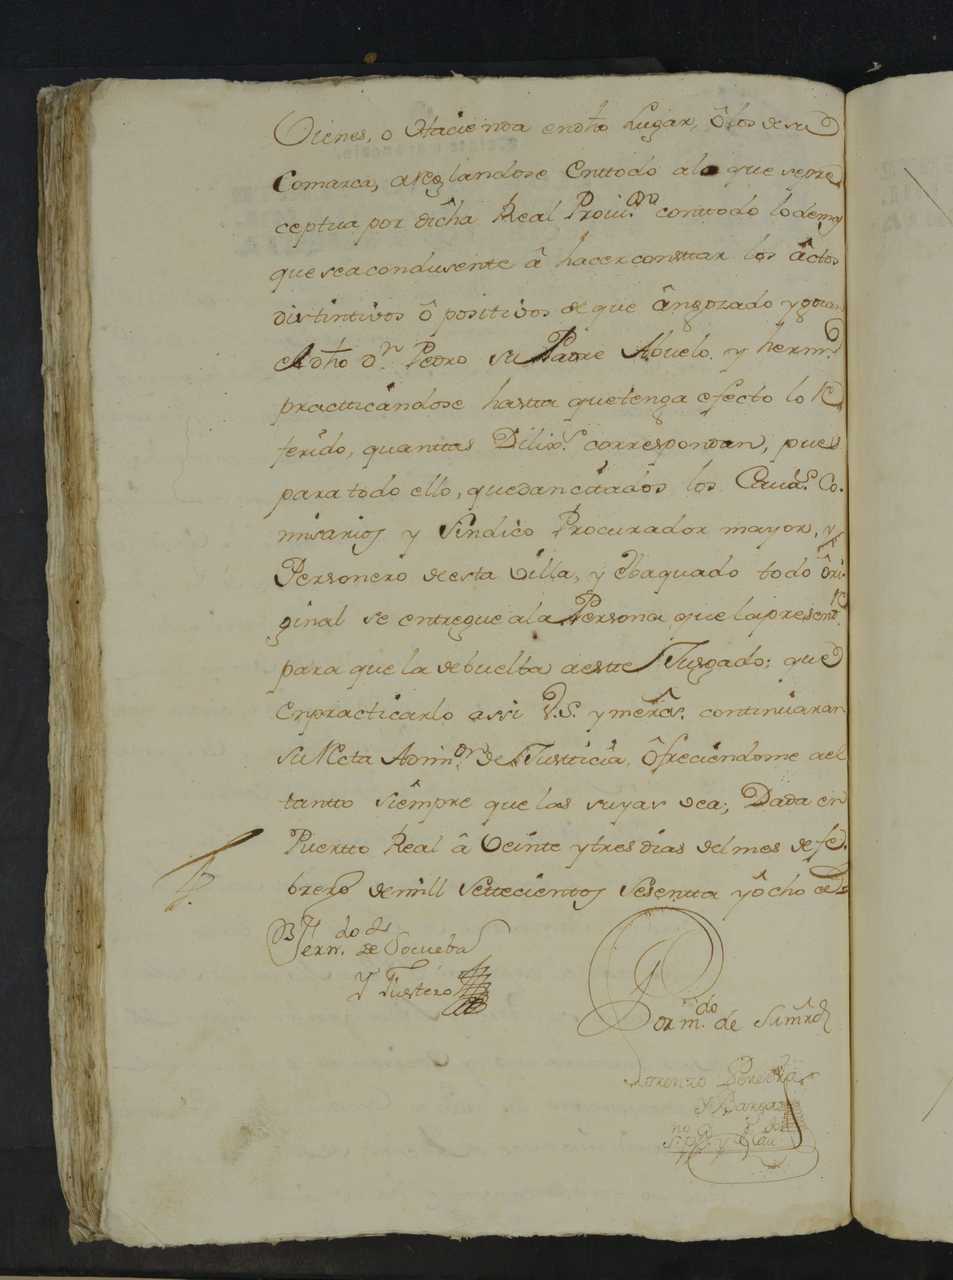 Vienes, o Hacienda en dho Lugar, ô los de su
Comarca, arreglandose enttodo alo que sepre
ceptua por dicha Real Provi.on con todo lo demas
que sea condusente â hacer consttar los âctos
distintivos ô positivos de que ân gozado y gozan
el dho Dn. Pedro su Padre Abuelo y herm.s
practticandose hastta que tenga efecto lo re
ferido, quanttas Dilix.s correspondan, pues
para todo ello, quedan citados los Cavás. Co.
misarios y Sindico Procurador mayor, y
Personero de esta Villa, y Ebaquado todo ôri
ginal se entregue ala Persona que la presentte.
para que la debuelta a estte Jusgado; que
en practicarlo assi V.S. y mercs. continuaran
su Recta Admin.on de Justticia, ôfreciendome ael
tantto siempre que las suyas vea; Dada en
Puertto Real â Veinte y tres dias del mes de fe.
brero de mill Settecientos Sesentta y ôcho as
Bern.do de
Por m.do de su mrd
Lorenzo
y Vargas